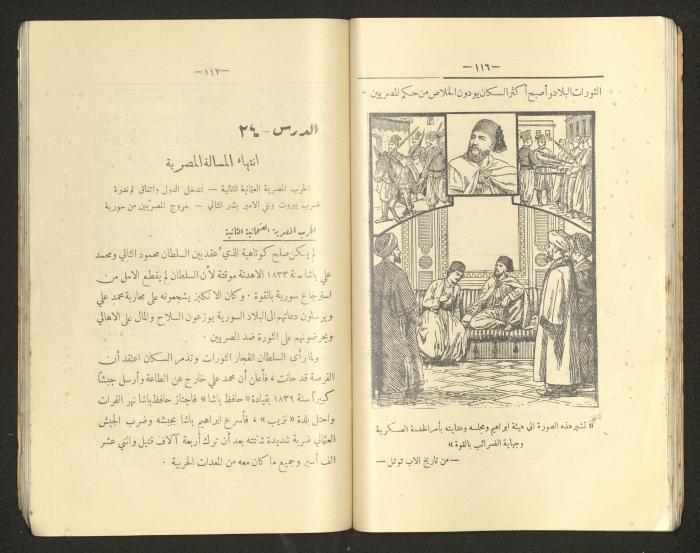 —١١٦—
الثورات البلاد وأصبح أكثر السكان يودون الخلاص من حكم المصريين .
« تشير هذه الصورة الى هيئة ابراهيم ومجلسه وعنايته بأمر الخدمة العسكرية
وجباية الضرائب بالقوة »
— من تاريخ الاب توتل —
—١١٧—
الدرس - ٢٤
انتهاء المسالة المصرية
الحرب المصرية العثمانية الثانية — تدخل الدول واتفاق لوندرة
ضرب بيروت ونفي الامير بشير الثاني — خروج المصريين من سورية
الحرب المصرية العثمانية الثانية
لم يكن صلح كوتاهية الذي عقد بين السلطان محمود الثاني ومحمد
علي باشا سنة ١٨٣٣ الا هدنة موقتة لأن السلطان لم يقطع الامل من
استرجاع سورية بالقوة . وكان الانكليز يشجعونه على محاربة محمد علي
ويرسلون دعاتهم الى البلاد السورية يوزعون السلاح والمال على الاهالي
ويحرضونهم على الثورة ضد المصريين .
ولما رأى السلطان انفجار الثورات وتذمر السكان اعتقد أن
الفرصة قد حانت ، فأعلن أن محمد علي خارج عن الطاعة وأرسل جيشاً
كبيراً سنة ١٨٣٩ بقيادة « حافظ باشا » فاجتاز حافظ باشا نهر الفرات
واحتل بلدة « نزيب » ، فأسرع ابراهيم باشا بجيشه وضرب الجيش
العثماني ضربة شديدة شتتته بعد أن ترك أربعة آلاف قتيل واثني عشر
الف أسير وجميع ما كان معه من المعدات الحربية .